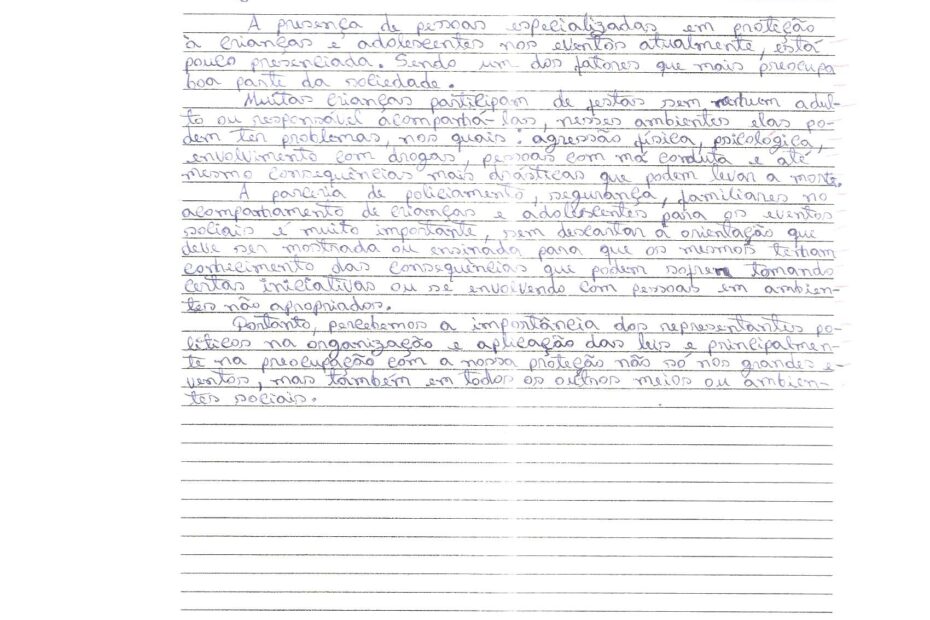 A presença de pessoas especializadas em proteção
à crianças e adolescentes nos eventos atualmente, está
pouco presenciada. Sendo um dos fatores que mais preocupa
boa parte da sociedade.
Muitas crianças participam de festas sem nenhum adul-
to ou responsável acompanhá-las, nesses ambientes elas po-
dem ter problemas, nos quais: agressão física, psicológica,
envolvimento com drogas, pessoas com má conduta e até
mesmo consequências mais drásticas que podem levar a morte.
A parceria de policiamento, segurança, familiares no
acompanhamento de crianças e adolescentes para os eventos
sociais é muito importante, sem descartar a orientação que
deve ser mostrada ou ensinada para que os mesmos tenham
conhecimento das consequências que podem sofrem tomando
certas iniciativas ou se envolvendo com pessoas em ambien-
tes não apropriados.
Portanto, percebemos a importância dos representantes po-
líticos na organização e aplicação das leis e principalmen-
te na preocupação com a nossa proteção não só nos grandes e-
ventos, mas também em todos os outros meios ou ambien-
tes sociais.